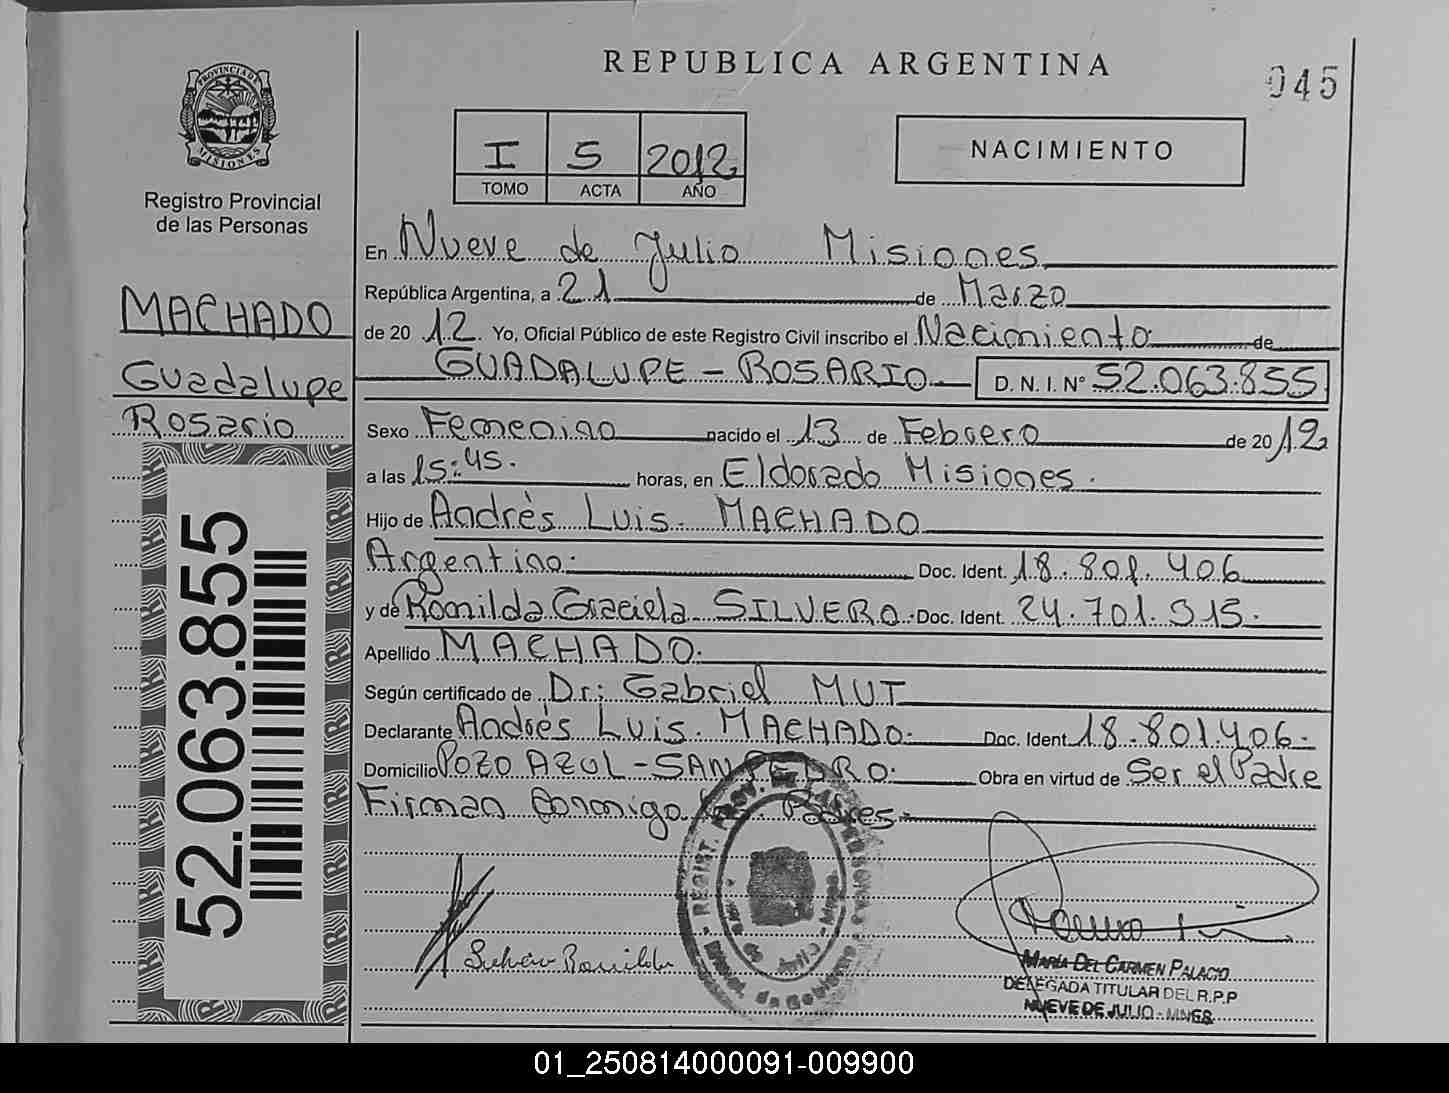 REPUBLICA ARGENTINA
045
Registro Provincial
de las Personas
MACHADO
Guadalupe
Rosario
52.063.855
I 5 2012
TOMO ACTA AÑO
NACIMIENTO
En Nueve de Julio Misiones
República Argentina, a 21 de Marzo
de 20 12. Yo, Oficial Público de este Registro Civil inscribo el Nacimiento de
GUADALUPE - ROSARIO D. N. I. N° 52.063.855
Sexo Femenino nacido el 13 de Febrero de 2012
a las 15:45. horas, en Eldorado Misiones.
Hijo de Andrés Luis. MACHADO
Argentino. Doc. Ident. 18.801.406
y de Romilda Graciela SILVERO. Doc. Ident. 24.701.915.
Apellido MACHADO.
Según certificado de Dr: Gabriel MUT
Declarante Andrés Luis. MACHADO. Doc. Ident 18.801.406.
Domicilio POZO AZUL - SAN PEDRO. Obra en virtud de Ser el Padre
Firman Conmigo Padres.
MARÍA DEL CARMEN PALACIO
DELEGADA TITULAR DEL R.P.P
NUEVE DE JULIO - MNES
01_250814000091-009900